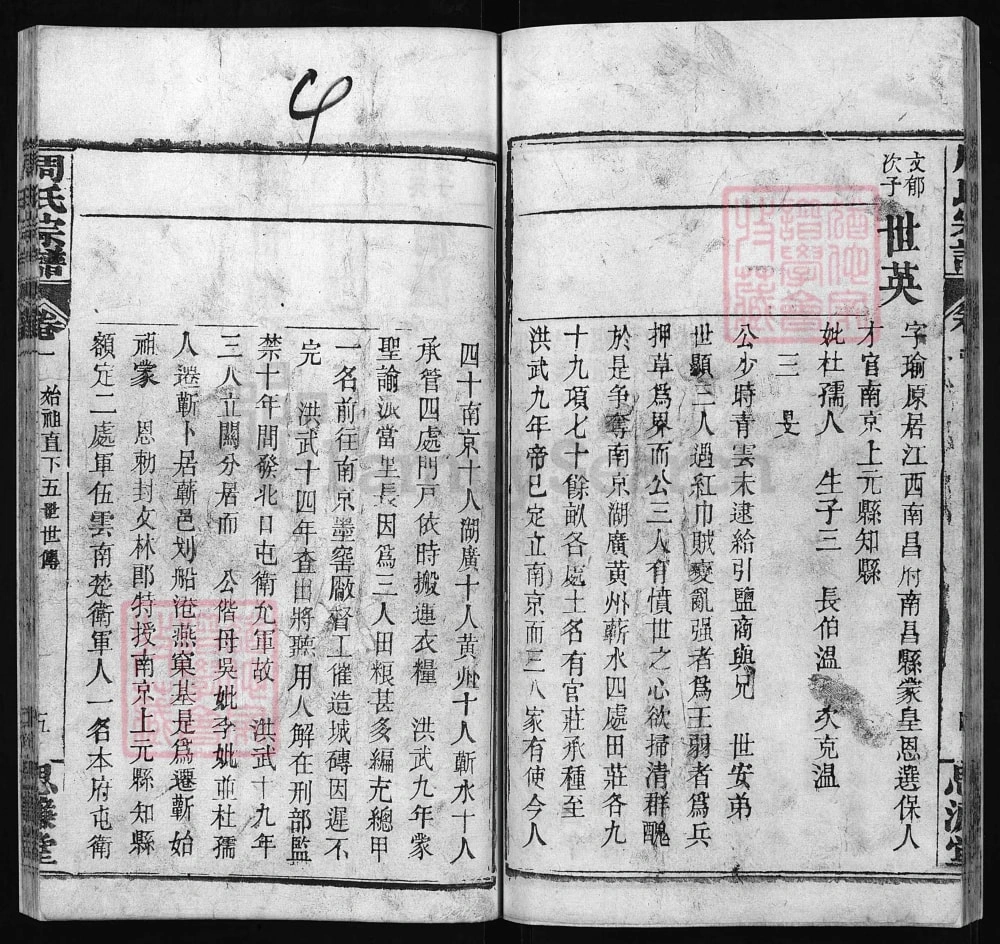 文郁
次子
世英
字瑜原居江西南昌府南昌縣蒙皇恩選保人
才官南京上元縣知縣
妣杜孺人 生子三 長伯溫 次克溫
三旻
公少時青雲未逮給引鹽商與兄 世安弟
世顯三人過紅巾賊變亂强者爲王弱者爲兵
押草爲界而公三人有憤世之心欲掃清群醜
於是争奪南京湖廣黄州蘄水四處田莊各九
十九項七十餘畝各處土名有官莊承種至
洪武九年帝已定立南京而三人家有使今人
四十南京十人湖廣十人黄州十人蘄水十人
承管四處門戸依時搬運衣糧 洪武九年蒙
聖諭派當里長因爲三人田粮甚多編充總甲
一名前往南京墨窑厰督工催造城磚因遲不
完 洪武十四年查出將聽用人解在刑部監
禁十年間發北口屯衛充軍故 洪武十九年
三人立關分居而 公偕母吴妣李妣並杜孺
人遷蘄卜居蘄邑划船淹燕窠基是爲遷蘄始
祖蒙 恩勅封文林郎特授南京上元縣知縣
額定二處軍伍雲南楚衛軍人一名本府屯衛
周氏宗譜
卷一 始祖直下五世世傳
五
思源堂